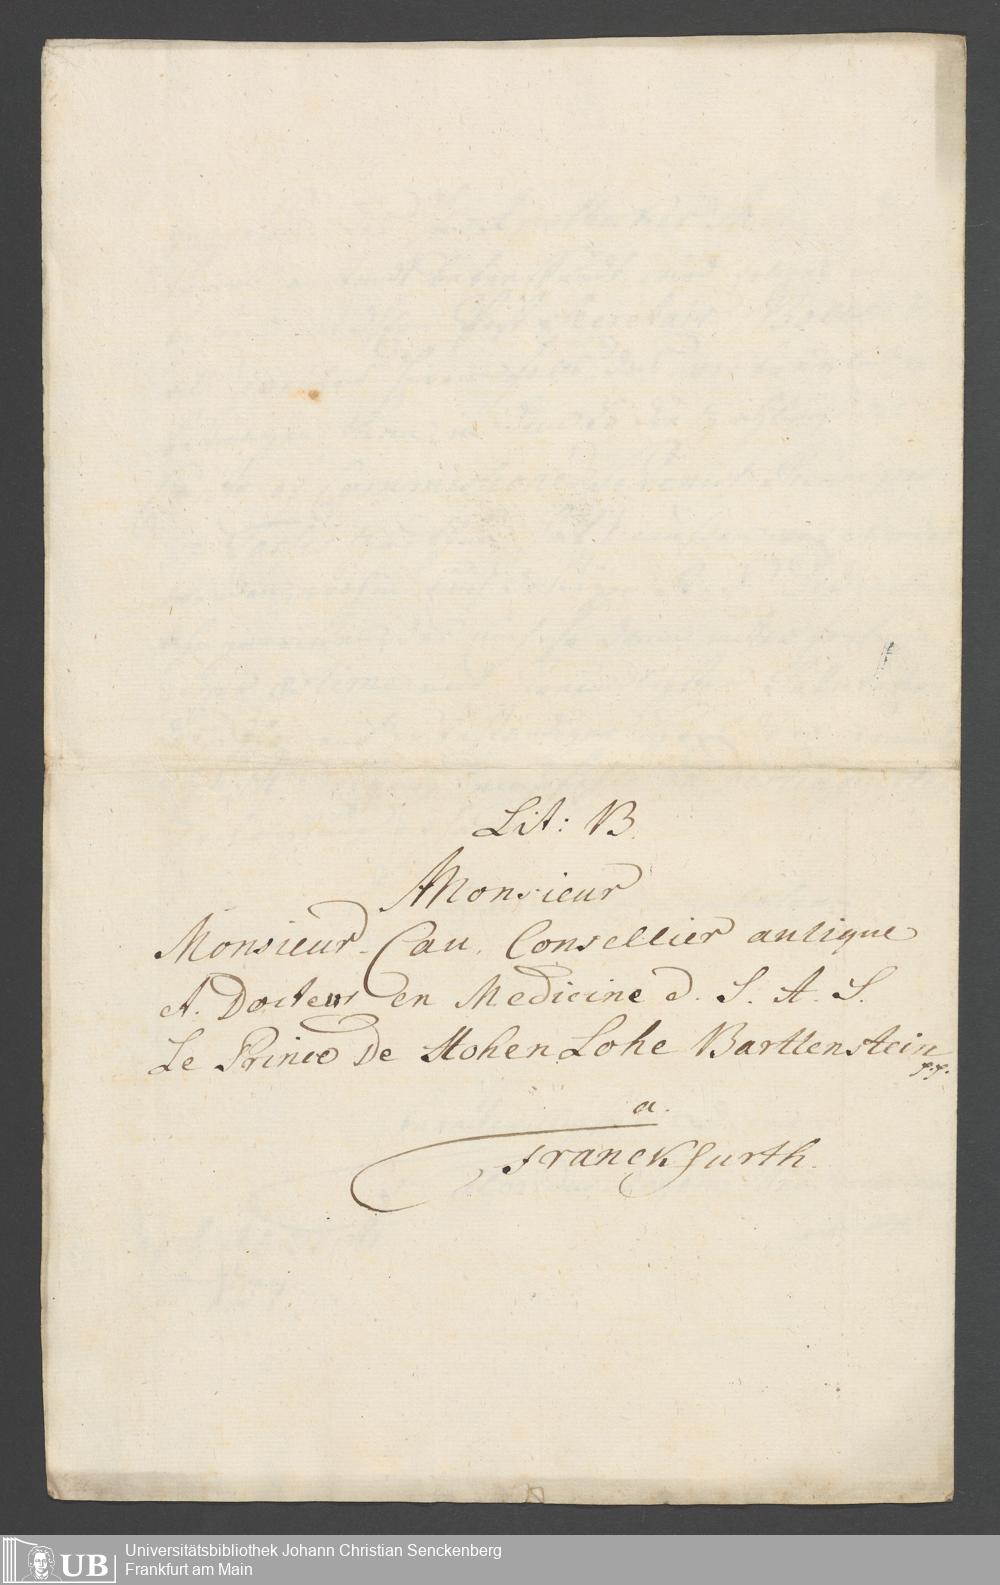 Lit: B.
Monsieur
Monsieur Cau, Consellier aulique
et. Docteur en Medicine d. S. A. S.
Le Prince De Hohen Lohe Barttenstein
p.p.
a.
Franckfurth.
UB
Universitätsbibliothek Johann Christian Senckenberg
Frankfurt am Main